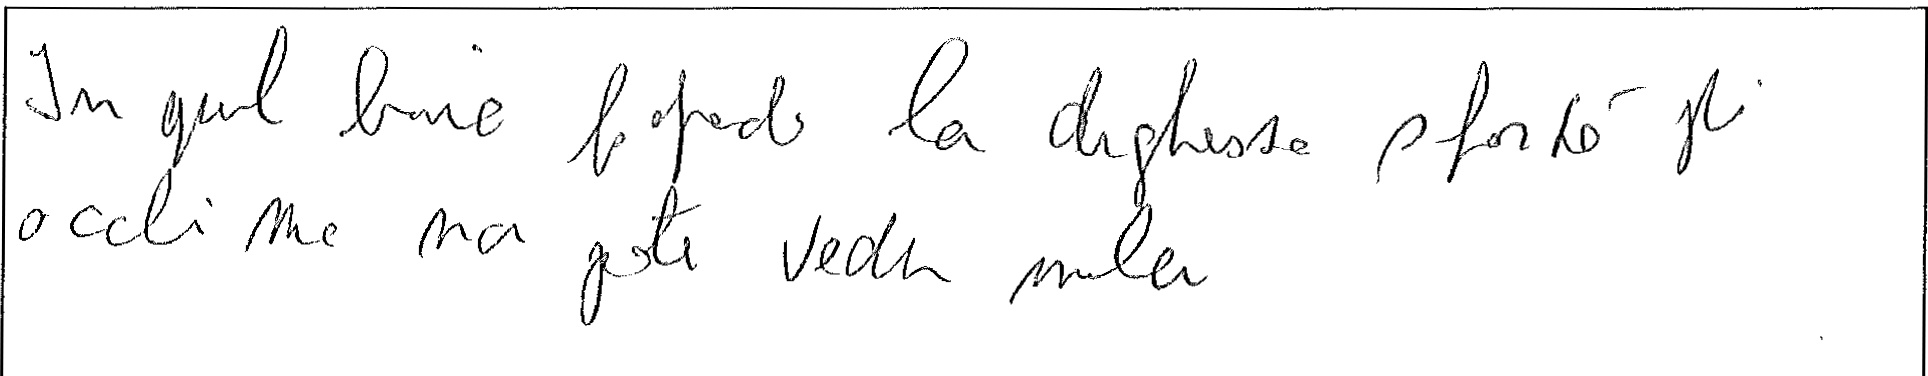 In quel buio la duchessa sforzò gli
occhi ma non poté veder nulla